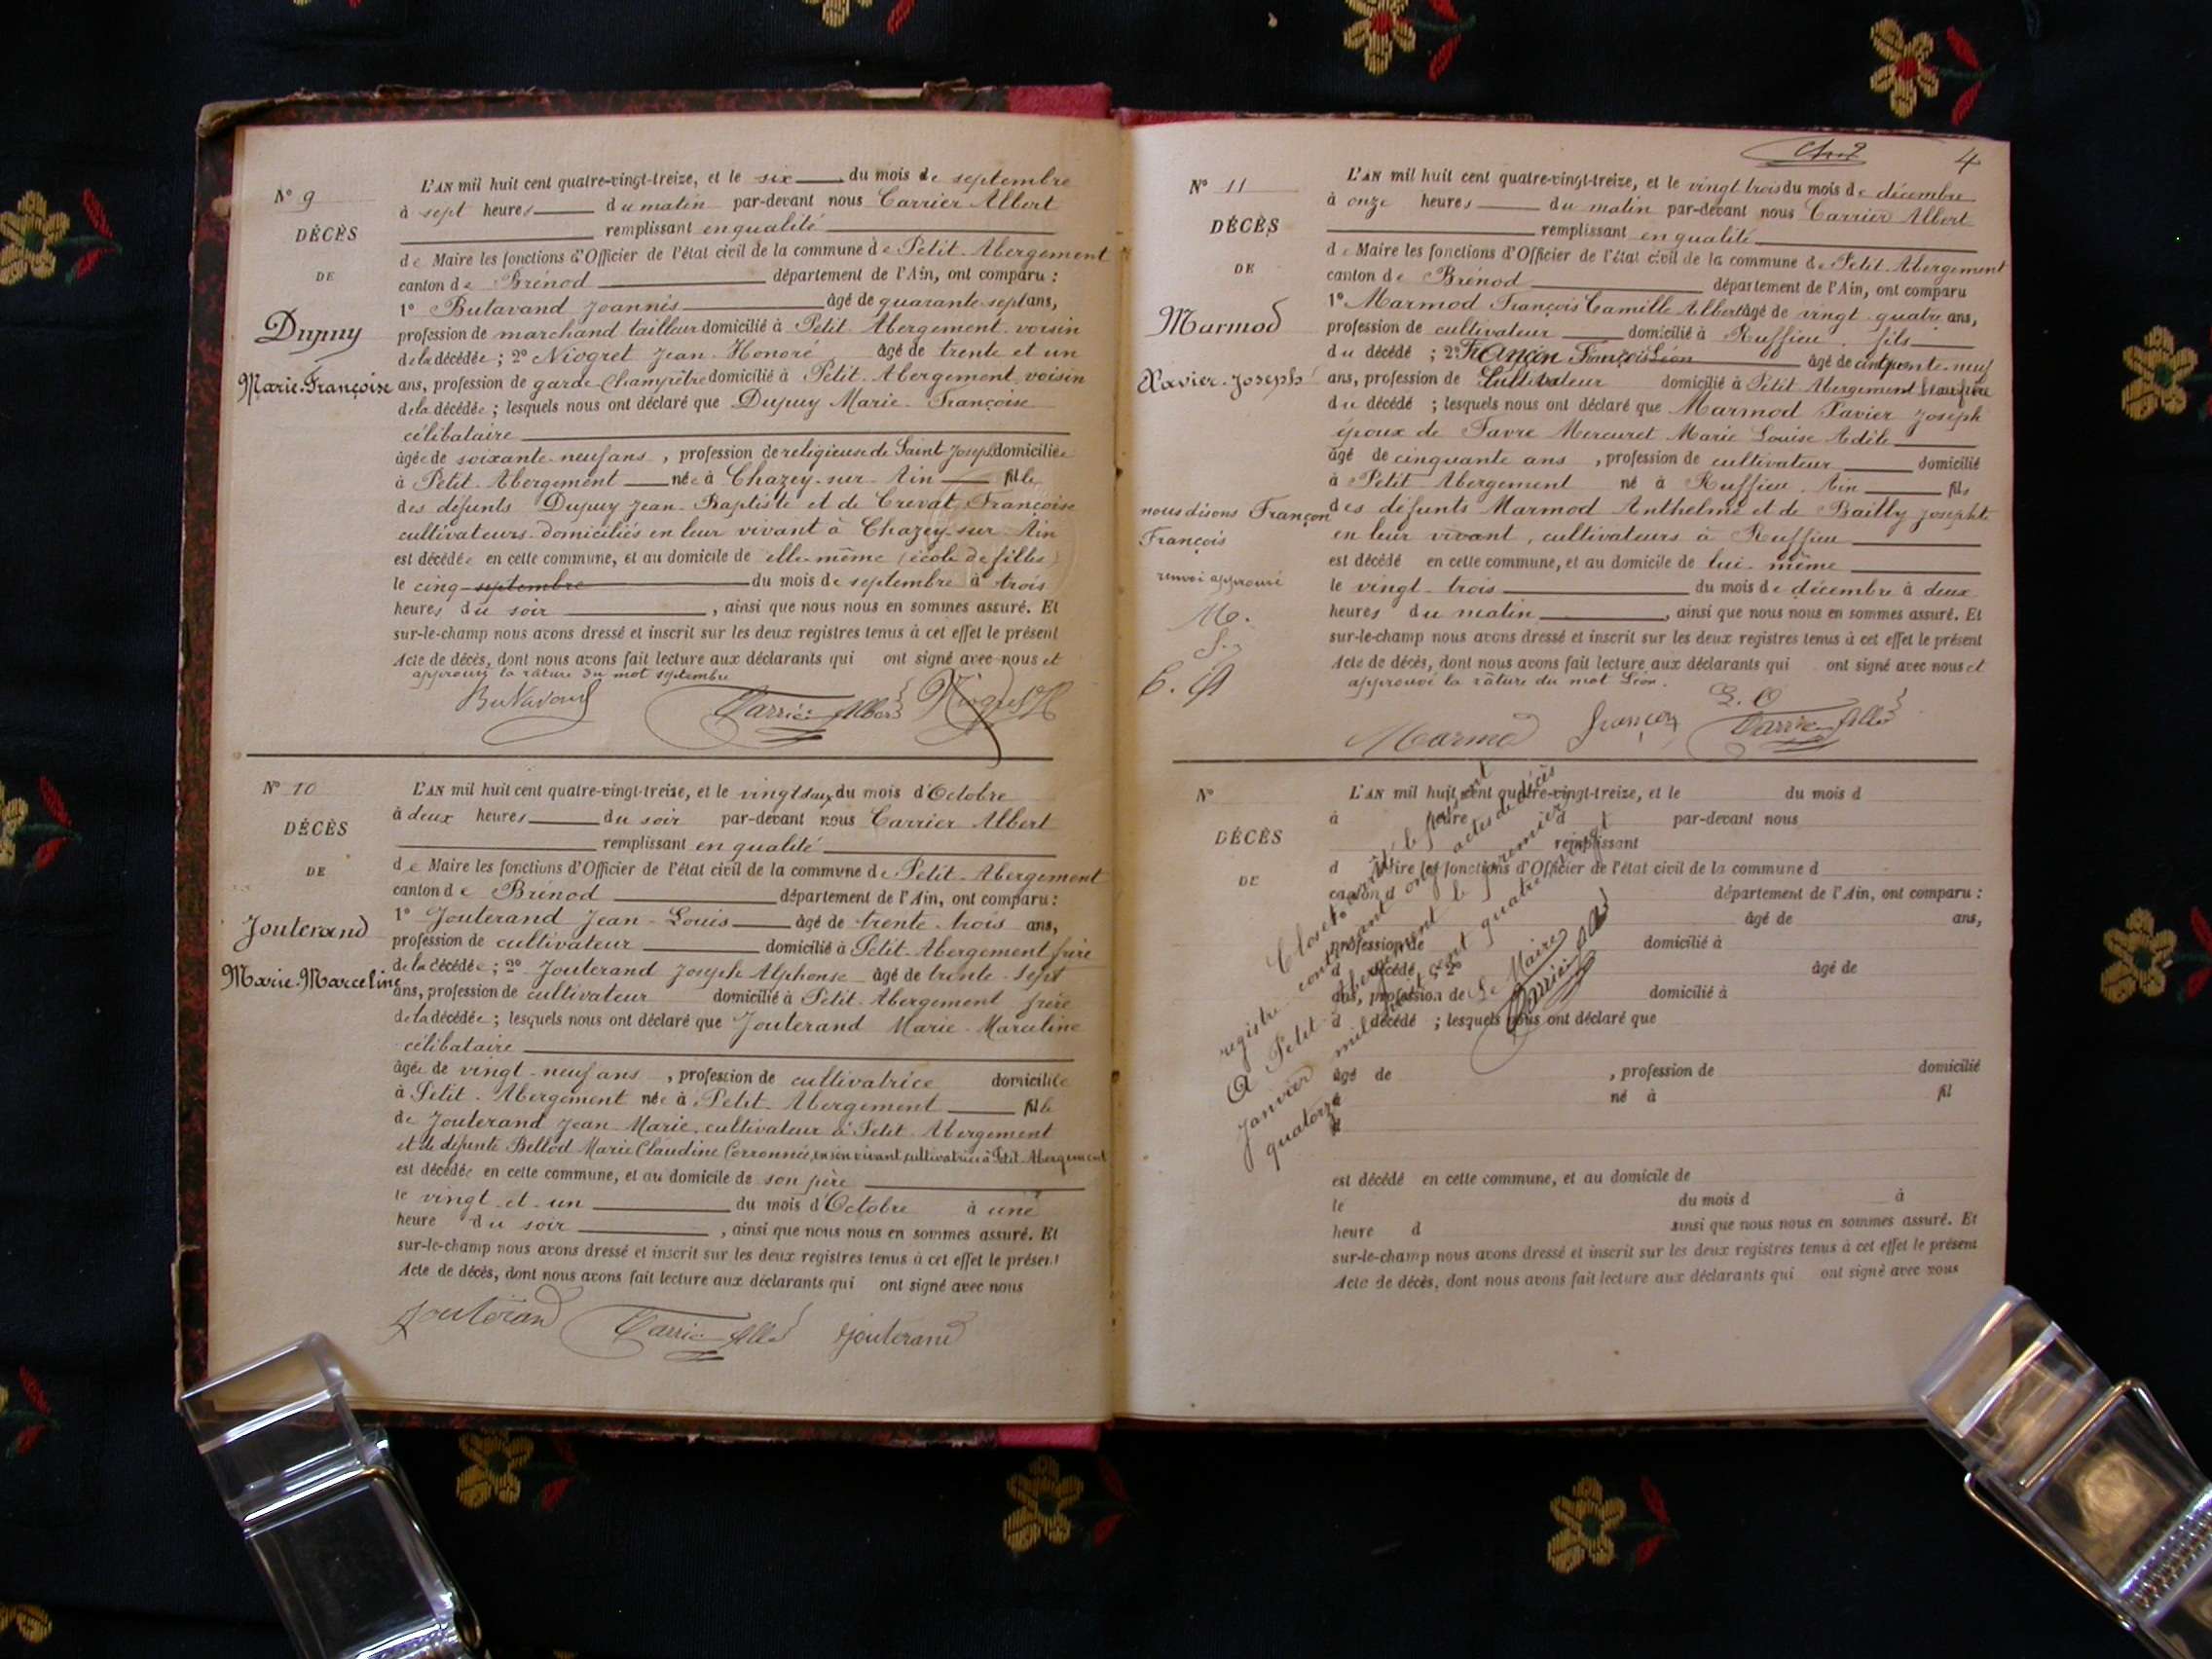 N° 9
DÉCÈS
DE
Dupuy
Marie-Françoise
L'AN mil huit cent quatre-vingt-treize, et le six du mois de septembre
à sept heures du matin par-devant nous Carrier Albert
remplissant en qualité
de Maire les fonctions d'Officier de l'état civil de la commune de Petit-Abergement
canton de Brénod département de l'Ain, ont comparu :
1° Butavand Joannès âgé de quarante-sept ans,
profession de marchand tailleur domicilié à Petit-Abergement voisin
de la décédée ; 2° Niogret Jean-Honoré âgé de trente et un
ans, profession de garde-champêtre domicilié à Petit-Abergement, voisin
de la décédée ; lesquels nous ont déclaré que Dupuy Marie-Françoise
célibataire
âgée de soixante-neuf ans, profession de religieuse de Saint-Joseph domiciliée
à Petit-Abergement née à Chazey-sur-Ain fille
des défunts Dupuy Jean-Baptiste et de Crevat Françoise
cultivateurs domiciliés en leur vivant à Chazey-sur-Ain
est décédée en cette commune, et au domicile de elle-même (école de filles)
le cinq septembre du mois de septembre à trois
heures du soir, ainsi que nous nous en sommes assuré. Et
sur-le-champ nous avons dressé et inscrit sur les deux registres tenus à cet effet le présent
Acte de décès, dont nous avons fait lecture aux déclarants qui ont signé avec nous et
approuvé la râture du mot septembre
Butavand Carrier Albert Niogret JH
N° 10
DÉCÈS
DE
Jouterand
Marie-Marceline
L'AN mil huit cent quatre-vingt-treize, et le vingt deux du mois d'Octobre
à deux heures du soir par-devant nous Carrier Albert
remplissant en qualité
de Maire les fonctions d'Officier de l'état civil de la commune de Petit-Abergement
canton de Brénod département de l'Ain, ont comparu :
1° Jouterand Jean-Louis âgé de trente-trois ans,
profession de cultivateur domicilié à Petit-Abergement frère
de la décédée ; 2° Jouterand Joseph Alphonse âgé de trente-sept
ans, profession de cultivateur domicilié à Petit-Abergement frère
de la décédée ; lesquels nous ont déclaré que Jouterand Marie-Marceline
célibataire
âgée de vingt-neuf ans, profession de cultivatrice domiciliée
à Petit-Abergement née à Petit-Abergement fille
de Jouterand Jean Marie, cultivateur à Petit-Abergement
et de défunte Bellod Marie Claudine Corronnée, en son vivant, cultivatrice à Petit-Abergement
est décédée en cette commune, et au domicile de son père
le vingt et un du mois d'Octobre à une
heure du soir, ainsi que nous nous en sommes assuré. Et
sur-le-champ nous avons dressé et inscrit sur les deux registres tenus à cet effet le présent
Acte de décès, dont nous avons fait lecture aux déclarants qui ont signé avec nous
Jouterand Carrier Albt Jouterand
4
N° 11
DÉCÈS
DE
Marmod
Xavier-Joseph
nous disons Françon
François
renvoi approuvé
L'AN mil huit cent quatre-vingt-treize, et le vingt trois du mois de décembre
à onze heures du matin par-devant nous Carrier Albert
remplissant en qualité
de Maire les fonctions d'Officier de l'état civil de la commune de Petit-Abergement
canton de Brénod département de l'Ain, ont comparu
1° Marmod François Camille Albert âgé de vingt-quatre ans,
profession de cultivateur domicilié à Ruffieu, fils
du décédé ; 2° Françon François Léon âgé de cinquante-neuf
ans, profession de cultivateur domicilié à Petit Abergement beau frère
du décédé ; lesquels nous ont déclaré que Marmod Xavier Joseph
époux de Favre Mercuret Marie Louise Adèle
âgé de cinquante ans, profession de cultivateur domicilié
à Petit Abergement né à Ruffieu, Ain fils
des défunts Marmod Anthelme et de Bailly Josephte
en leur vivant, cultivateurs à Ruffieu
est décédé en cette commune, et au domicile de lui-même
le vingt-trois du mois de décembre à deux
heures du matin, ainsi que nous nous en sommes assuré. Et
sur-le-champ nous avons dressé et inscrit sur les deux registres tenus à cet effet le présent
Acte de décès, dont nous avons fait lecture aux déclarants qui ont signé avec nous et
approuvé la râture du mot Léon.
Marmod françon Carrier Albt
N°
DÉCÈS
DE
L'AN mil huit cent quatre-vingt-treize, et le du mois d
à heure d par-devant nous
remplissant
d Maire les fonctions d'Officier de l'état civil de la commune d
canton d département de l'Ain, ont comparu :
âgé de ans,
profession de domicilié à
d décédé ; 2° âgé de
ans, profession de domicilié à
d décédé ; lesquels nous ont déclaré que
âgé de , profession de domicilié
né à fil
est décédé en cette commune, et au domicile de
le du mois d à
heure d ainsi que nous nous en sommes assuré. Et
sur-le-champ nous avons dressé et inscrit sur les deux registres tenus à cet effet le présent
Acte de décès, dont nous avons fait lecture aux déclarants qui ont signé avec nous
Clos et arrêté le présent
registre contenant onze actes de décès
A Petit-Abergement le premier
janvier mil huit cent quatre vingt
quatorze
Le Maire
Carrier Albt